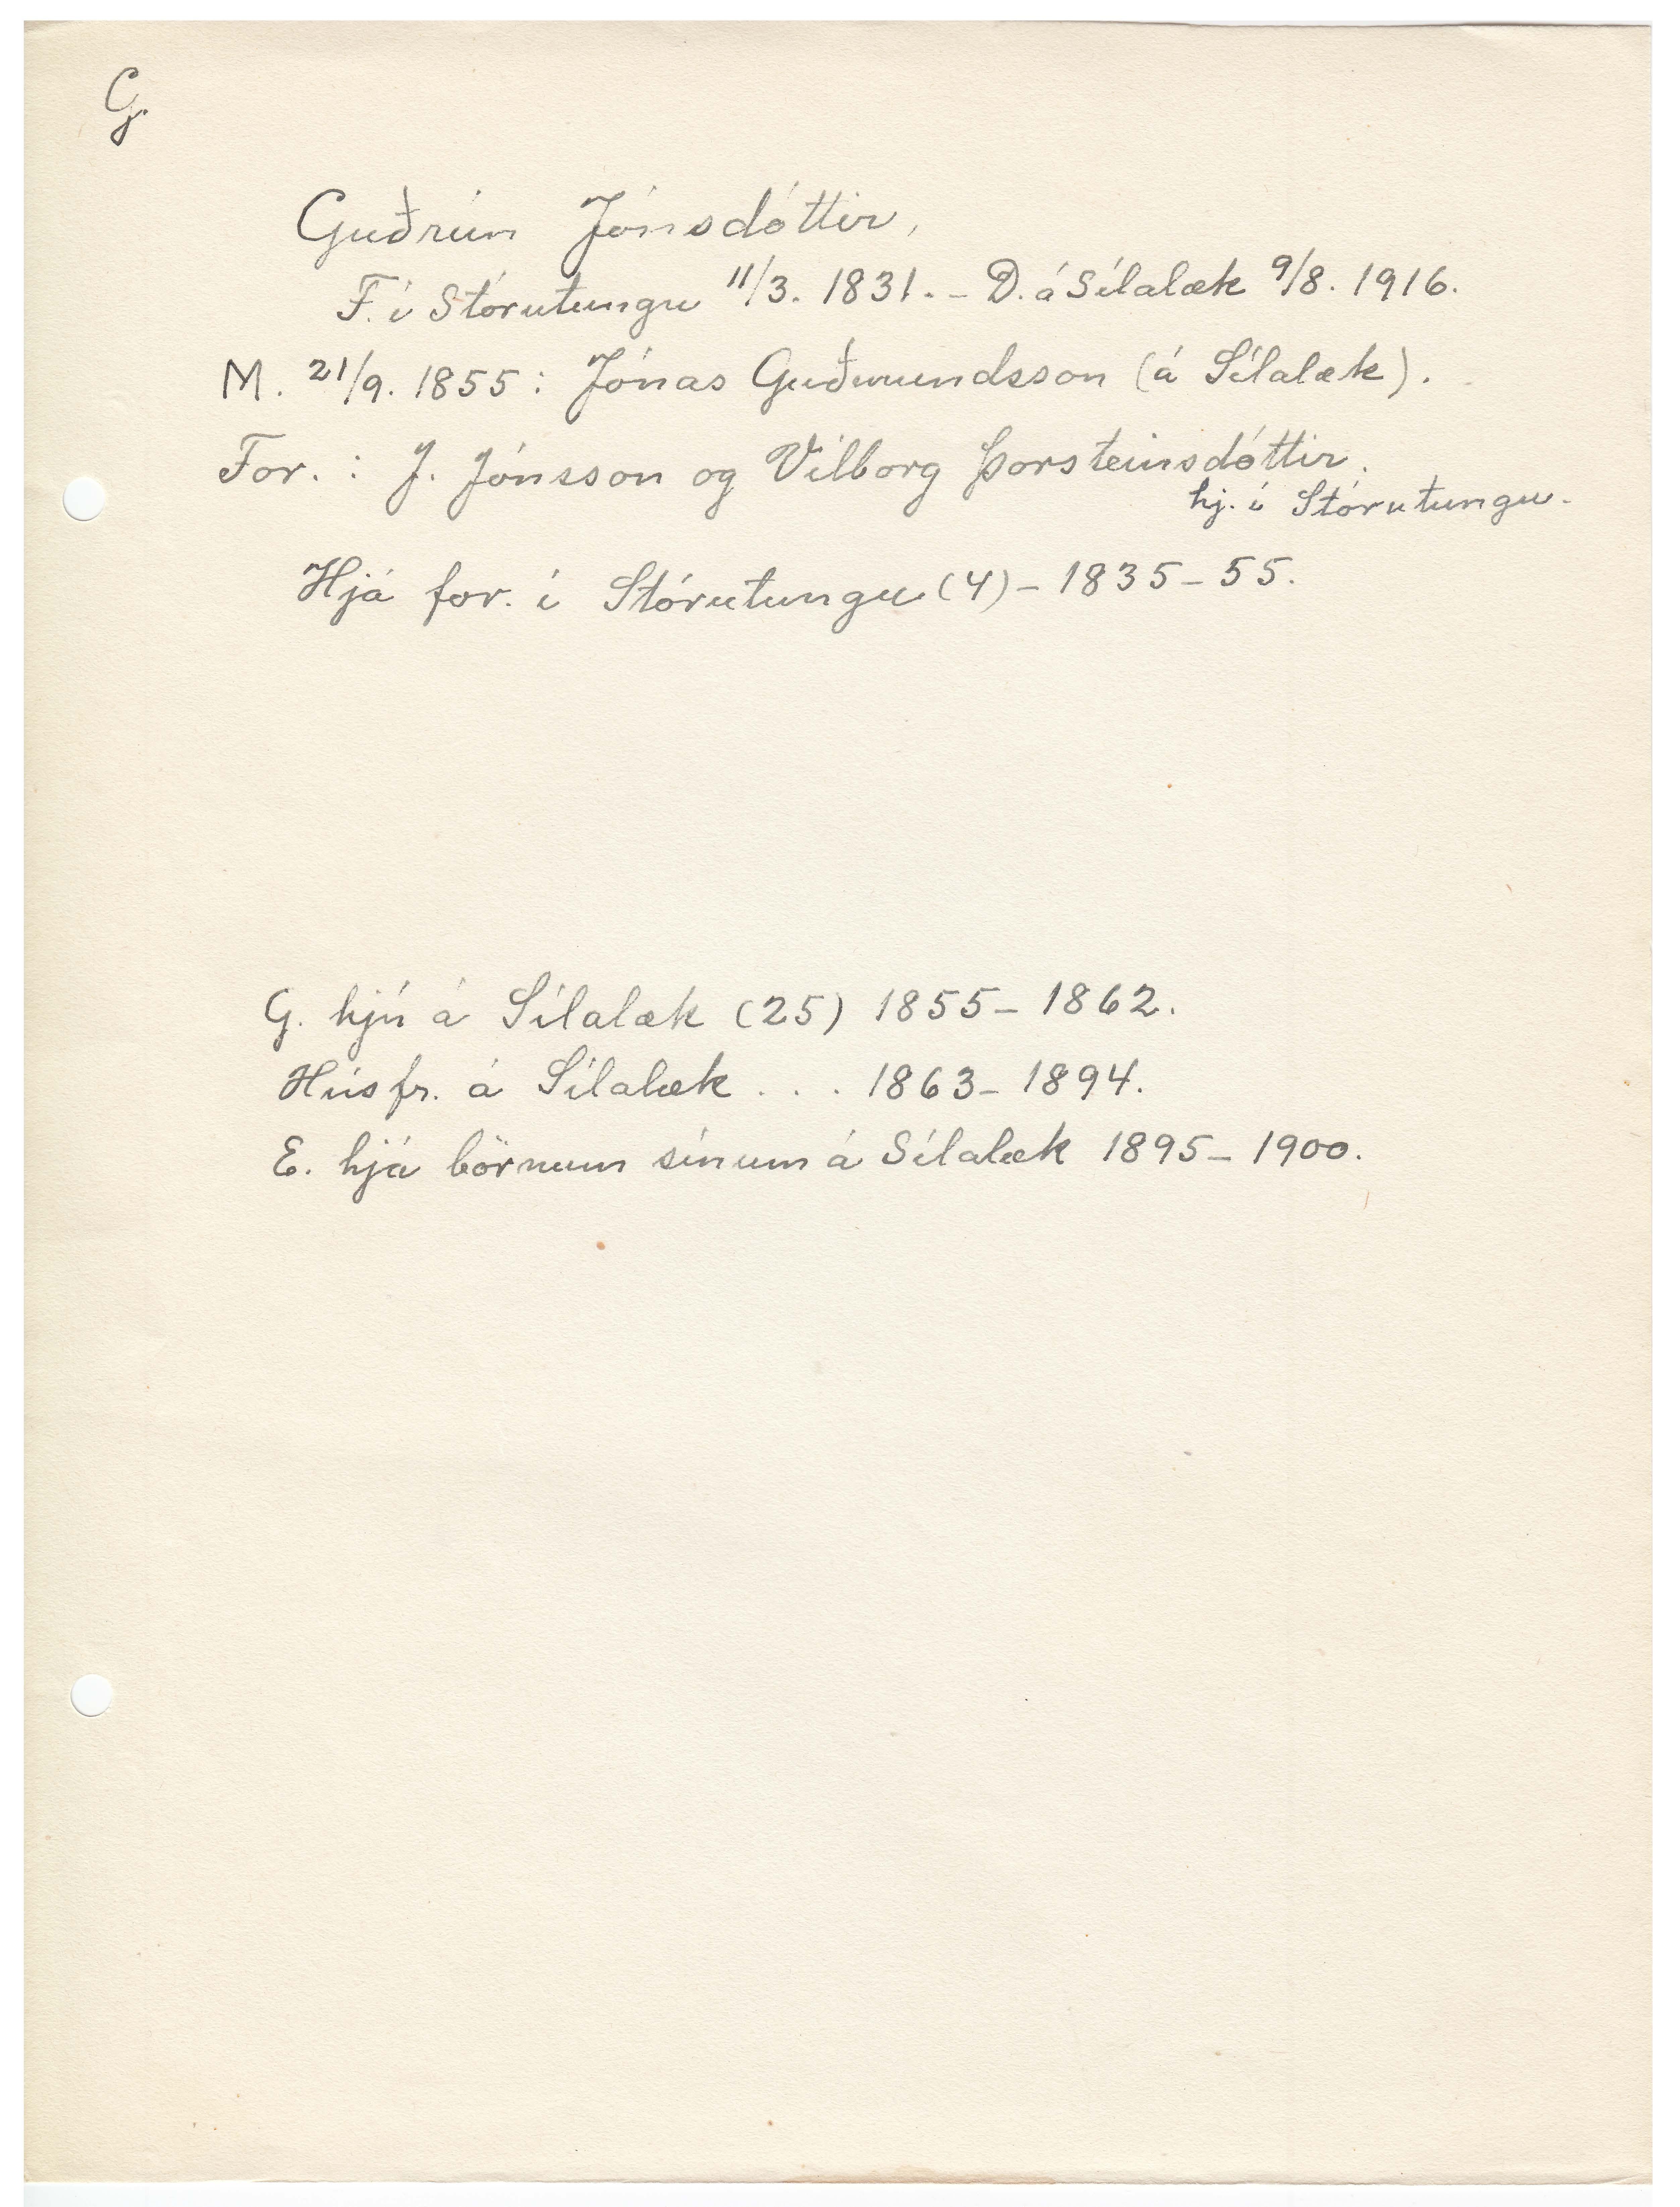 G.
Guðrún Jónsdóttir,
F. í Stórutungu 11/3. 1831. - D. á Sílalæk 9/8. 1916.
M. 21/9. 1855: Jónas Guðmundsson (á Sílalæk).
For.: J. Jónsson og Vilborg Þorsteinsdóttir.
hj. í Stórutungu.
Hjá for. í Stórutungu (4) - 1835-55.
G. hjú á Sílalæk (25) 1855-1862.
Húsfr. á Sílalæk . . . 1863-1894.
E. hjá börnum sínum á Sílalæk 1895-1900.